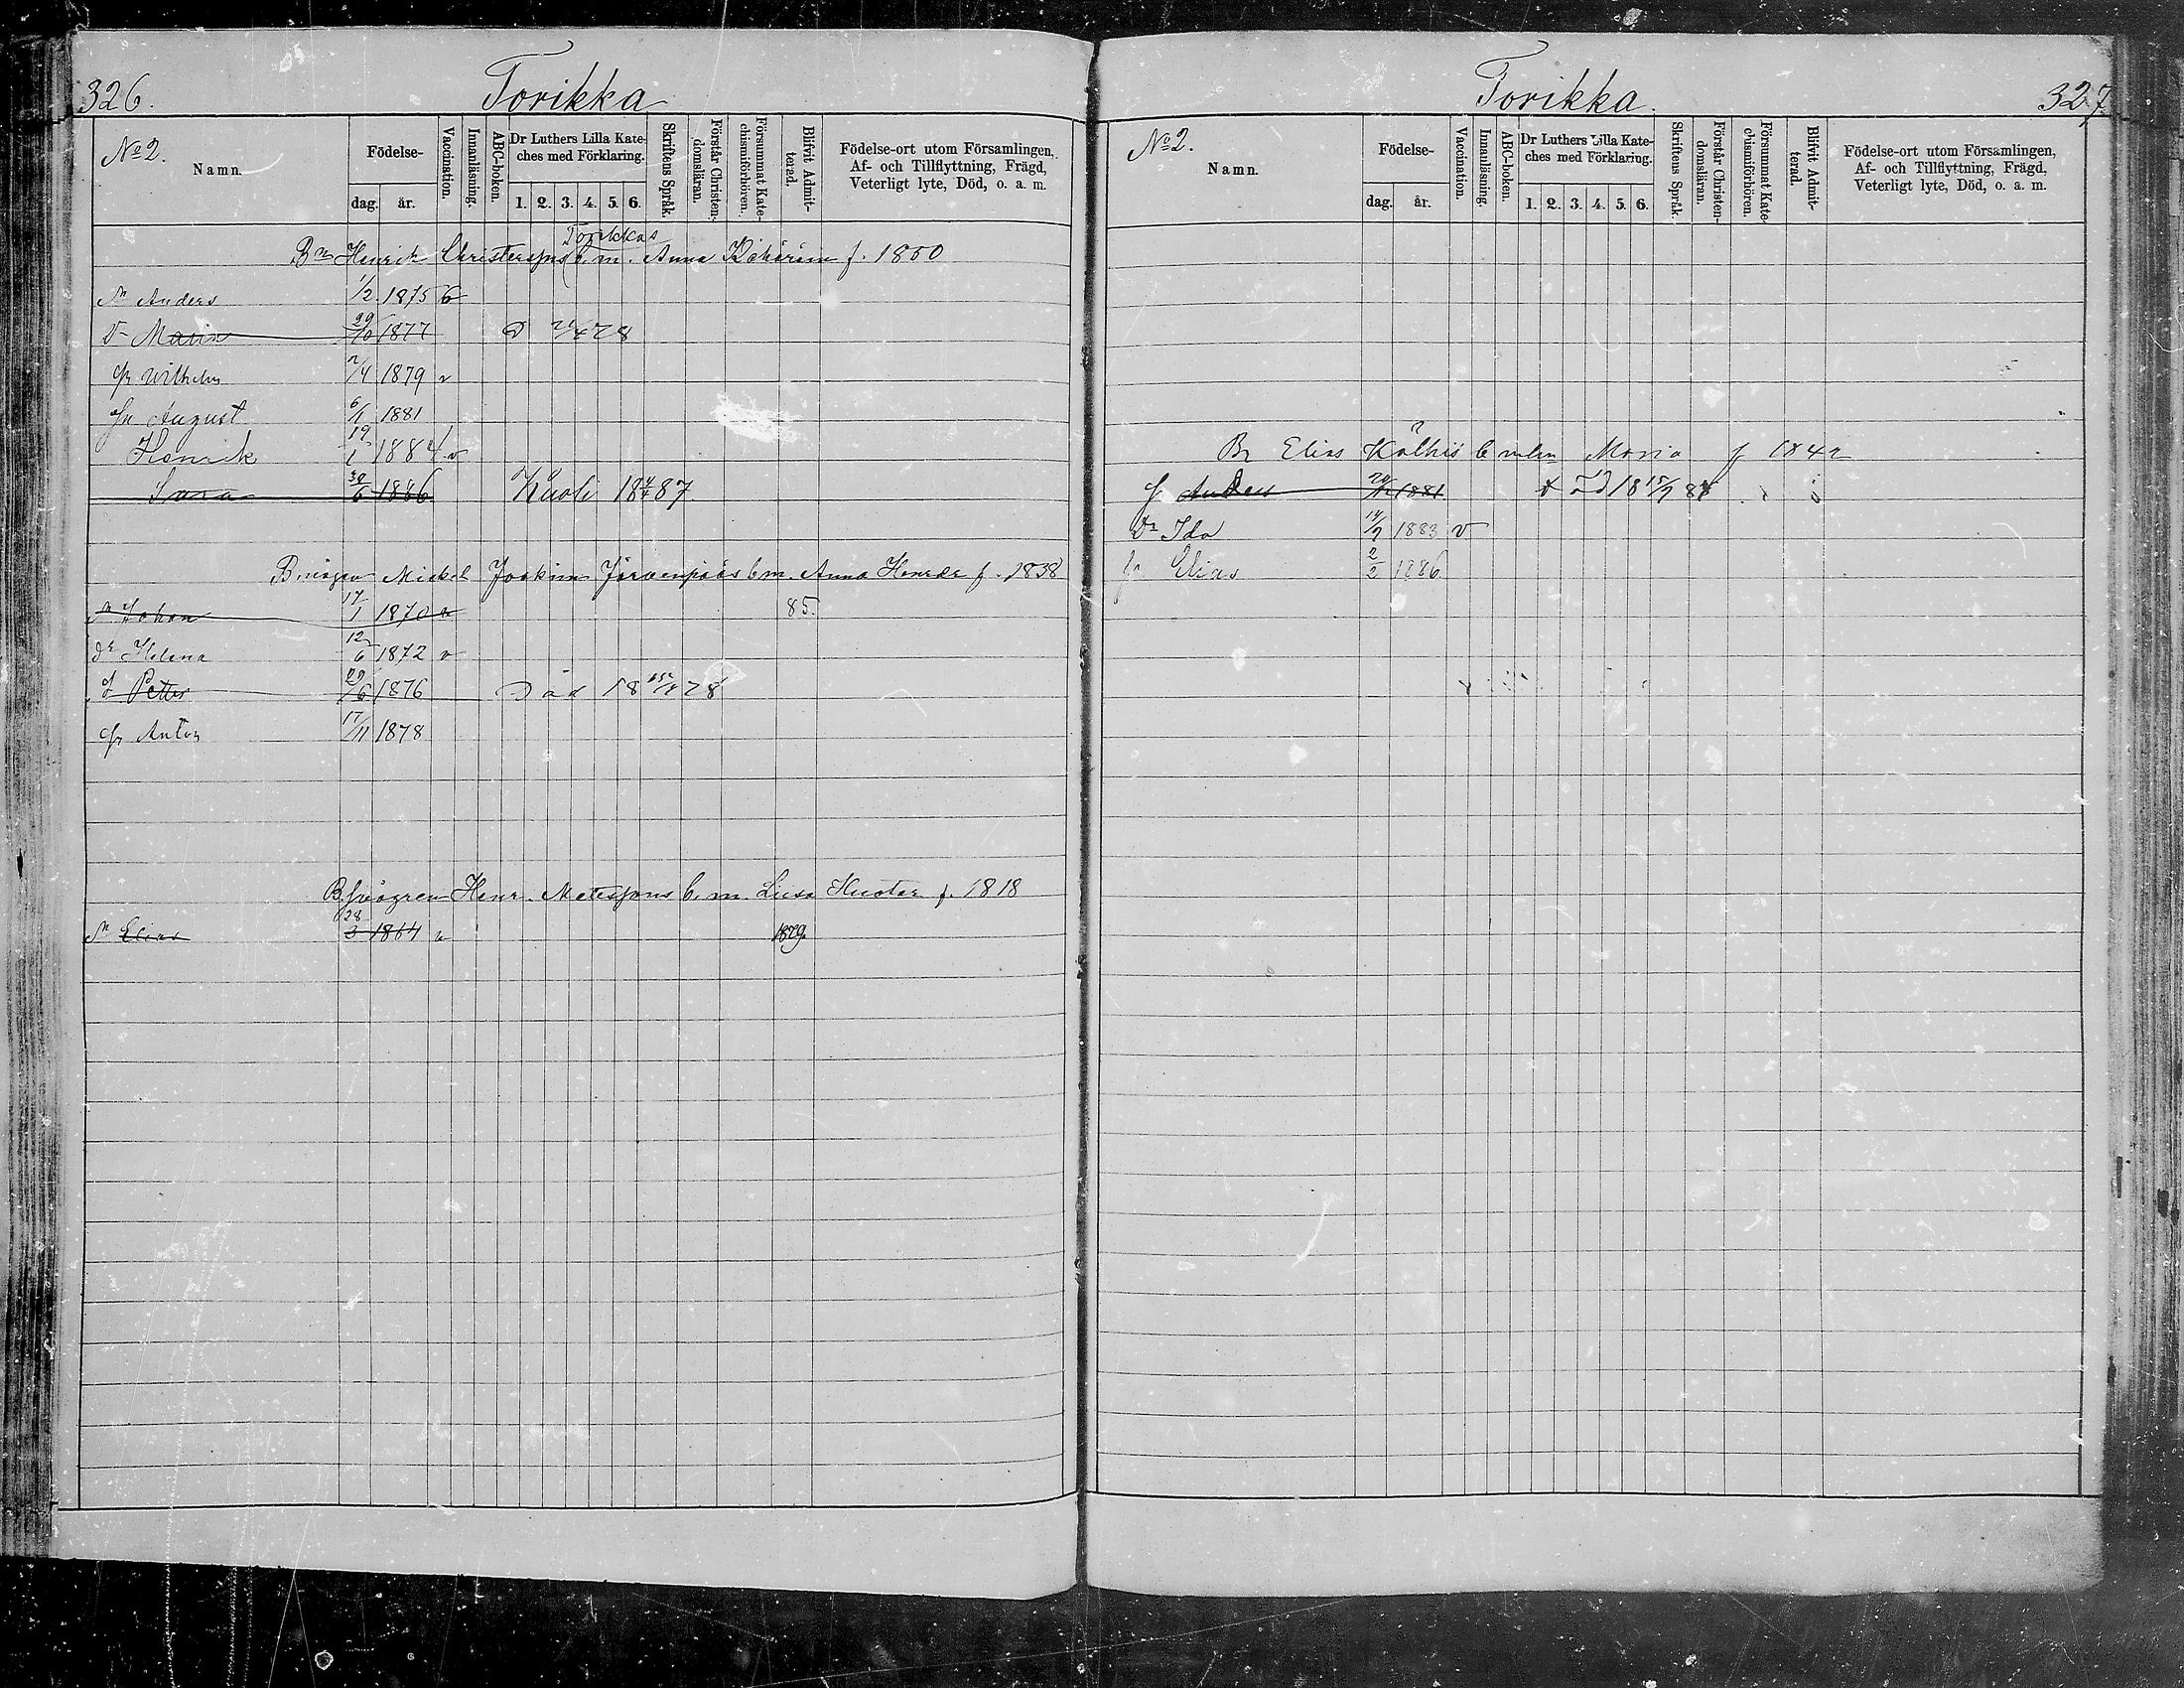 326.
Torikka
No 2.
Namn.
Födelse-
dag.
år.
Vaccination.
Innanläsning.
ABC-boken.
Dr Luthers Lilla Kate-
ches med Förklaring.
1. 2. 3. 4. 5. 6.
Skriftens Språk.
Förstår Christen-
domsläran.
Försummat Kate-
chismiförhören.
Blifvit Admit-
terad.
Födelse-ort utom Församlingen,
Af- och Tillflyttning, Frägd,
Veterligt lyte, Död, o. a. m.
Torikkas
Bn Henrik b. m. Anna f. 1850
Sn Anders 1/2 1875
Dr Maria 29/10 1877 D 4 78
Sn Wilhelm 2/4 1879 v
Sn August 6/1 1881
Henrik 19/1 1884 v
Sanna 30/6 1886 Kuoli 18 87
Mickel Joakim Järvenpääs b m. Anna Henrdr f. 1838
Sn Johan 17/1 1870 v 85.
Dr Helena 12/6 1872 v
Sn Petter 29/6 1876 Död 18 78
Sn Anton 17/11 1878
Henr. Matessons b. m. Liisa f. 1818
Sn Elias 28/3 1864 v 1879.
Torikka.
327.
No 2.
Namn.
Födelse-
dag.
år.
Vaccination.
Innanläsning.
ABC-boken.
Dr Luthers Lilla Kate-
ches med Förklaring.
1. 2. 3. 4. 5. 6.
Skriftens Språk.
Förstår Christen-
domsläran.
Försummat Kate-
chismiförhören.
Blifvit Admit-
terad.
Födelse-ort utom Församlingen,
Af- och Tillflyttning, Frägd,
Veterligt lyte, Död, o. a. m.
Elias Maria f 1842
Anders 1881
Dr Ida 14/9 1883 v
Sn Elias 2/2 1886